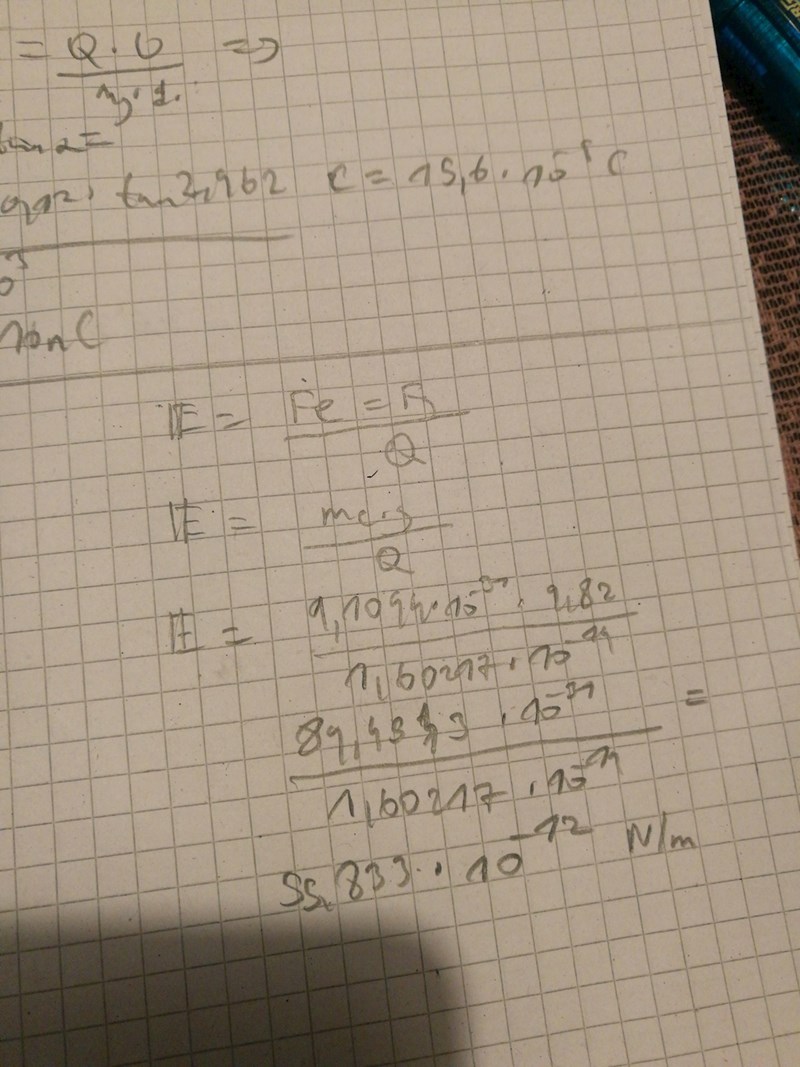 = Q · U / m · g =>
tan α =
tan 2,962 C = 15,6 · 10⁻⁸ C
10 n C
E = Fe = Fg / Q
E = me · g / Q
E = 9,1094 · 10⁻³¹ · 9,82 / 1,60217 · 10⁻¹⁹
89,4543 · 10⁻³¹ / 1,60217 · 10⁻¹⁹ =
55,833 · 10⁻¹² N/m